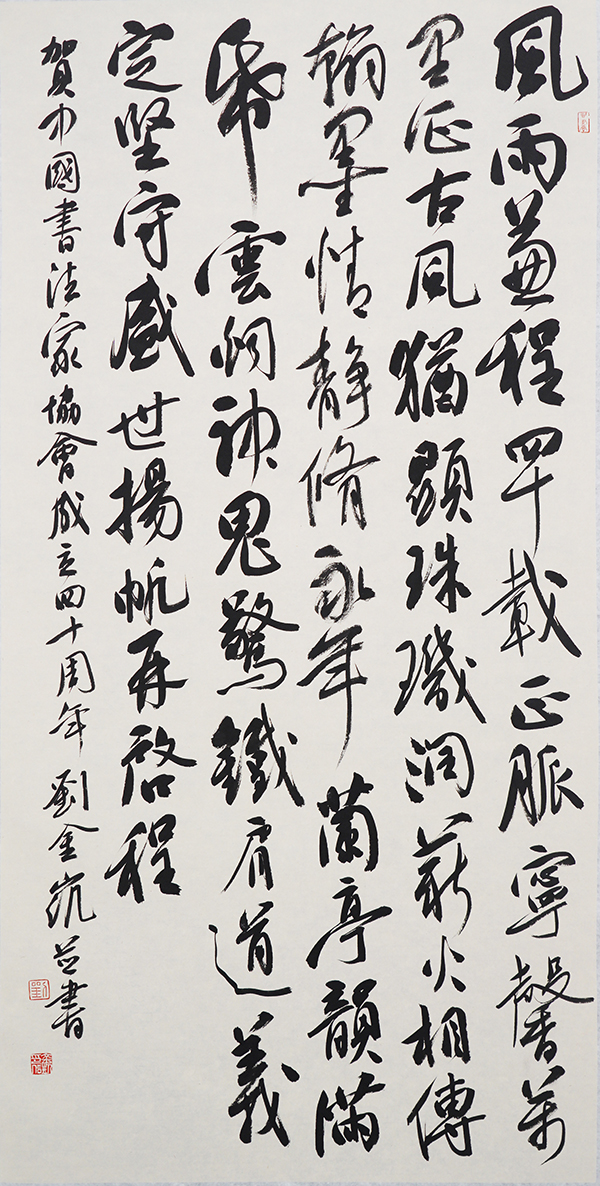 風雨兼程四十載正脈寧馨萬
里征古風猶顯珠璣潤薪火相傳
翰墨情靜脩永年蘭亭韻滿
帋雲烟神鬼驚鐵肩道義
定堅守盛世揚帆再啓程
賀中國書法家協會成立四十周年 劉金並書